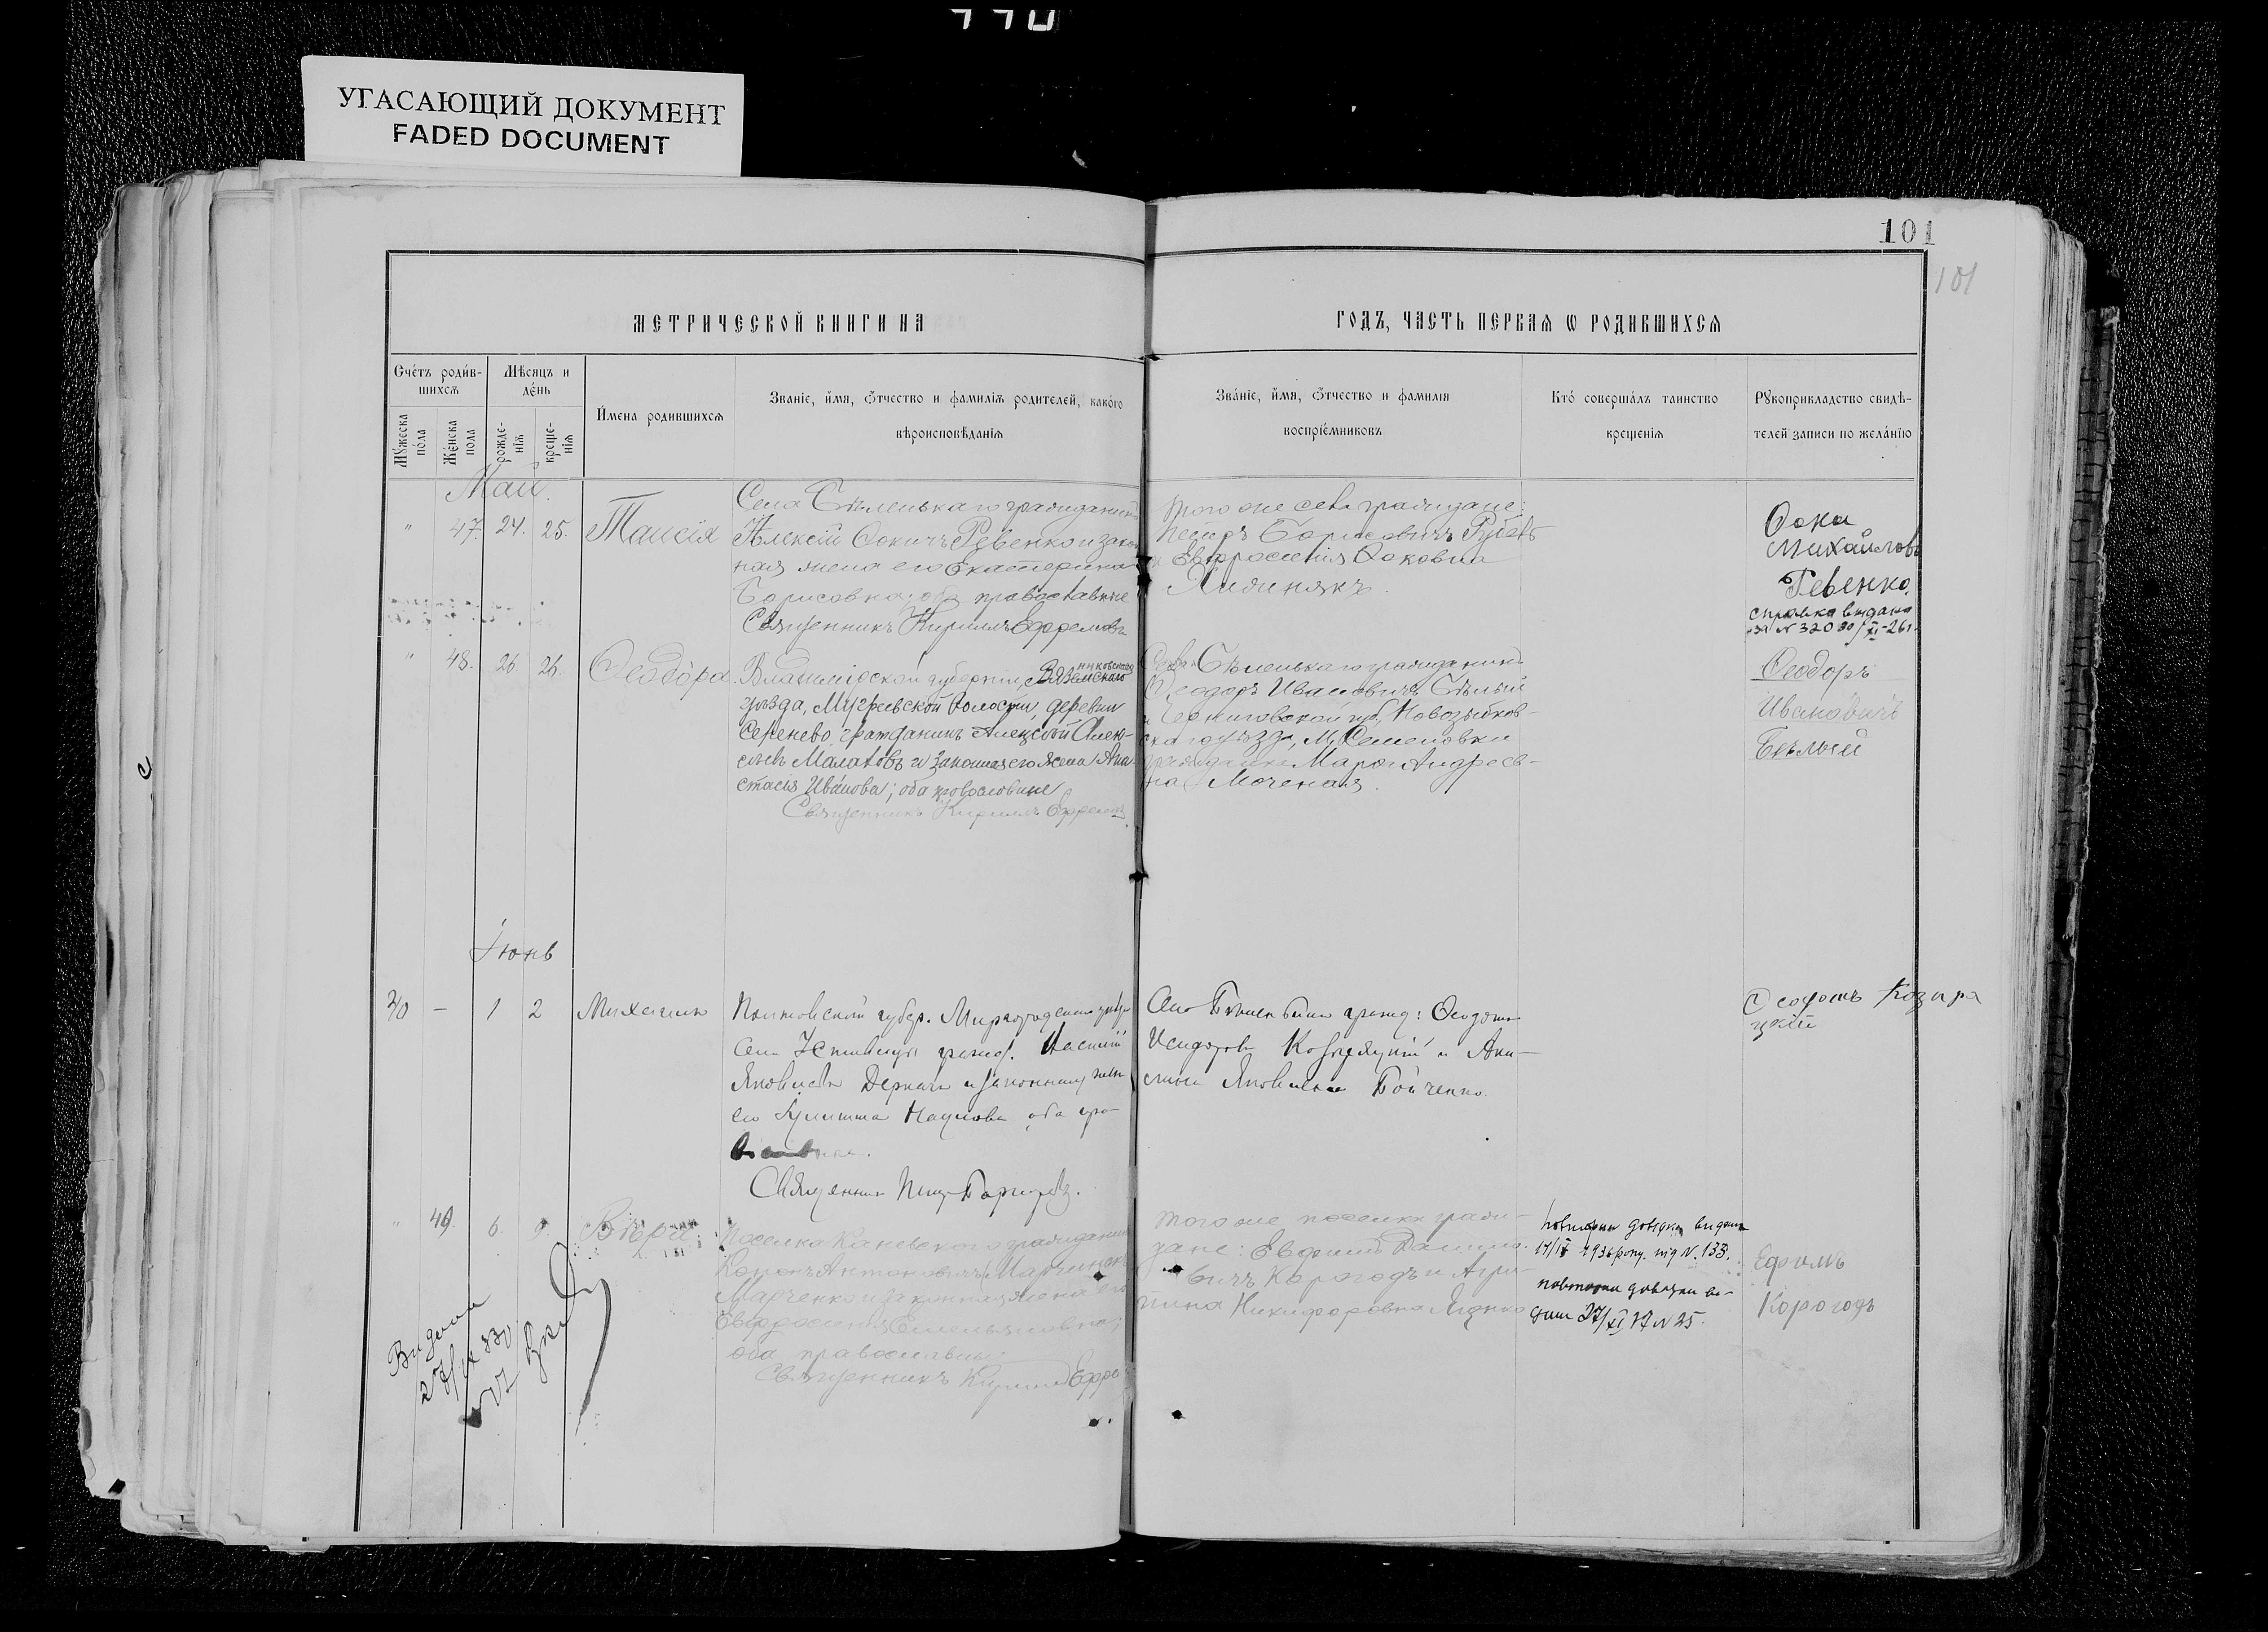 УГАСАЮЩИЙ ДОКУМЕНТ
FADED DOCUMENT
101
101
МЕТРИЧЕСКОЙ КНИГИ НА
ГОДЪ, ЧАСТЬ ПЕРВАЯ Ѡ РОДИВШИХСЯ
Счетъ родив-
шихся
Мѣсяцъ и
день
Мужеска
пола
Женска
пола
рожде-
нія
креще-
нія
Имена родившихся
Званіе, имя, отчество и фамилія родителей, какого
вѣроисповѣданія
Званіе, имя, отчество и фамилія
воспріемниковъ
Кто совершалъ таинство
крещенія
Рукоприкладство свидѣ-
телей записи по желанію
Май.
" 47. 24. 25. Таисія
Села Бѣленькаго гражданинъ
Алексій Ѳокичъ Ревенко и закон
ная жена его Екатерина
Борисовна; оба православные
Священникъ Кириллъ Ефремовъ
того же села граждане:
Петръ Борисовичъ
и Евфросинія Ѳоковна
Ѳока
Михайловъ
Ревенко
справка выдана
за № 320 30/XI-26г.
" 48. 26. 26. Ѳеодора.
Владимірской губерніи, Вяз
никовскаго
уѣзда, Мугреевской волости, деревни
Серенево, гражданинъ Алексѣй Алек-
сѣевъ Малаховъ и законная его жена Ана
стасія Иванова; оба православные
Священникъ Кириллъ Ефремовъ
Села Бѣленькаго гражданинъ
Ѳеодоръ Ивановичъ Бѣлый
и Черниговской губ, Новозыбков-
скаго уѣзда, М. Семеновки
гражданка Марѳа Андреев-
на Моченая.
Ѳеодоръ
Ивановичъ
Бѣлый
Іюнь
30 — 1 2 Михаилъ
Полтавской губер. Миргородскаго уѣзда
села гражд.
Яковлевъ Деркачъ и законная жена
его Наумова оба пра
вославные.
Священникъ
Села Бѣленькаго гражд: Ѳеодотъ
Исидоровъ Козырацкій и Аки-
лина Яковлева Бойченко.
Ѳеодотъ Козыра
цкій
" 49. 6. 9. Вѣра
Поселка Каневского гражданинъ
Кононъ Антоновичъ
Марченко и законная жена его
Евфросинія Емельяновна;
оба православные
Священникъ Кириллъ Ефре
того же поселка граж-
дане: Евфимъ Данило-
вичъ Корогодъ и Агри-
пина Никифоровна
повторни довідки видані
1936 року. під N. 133.
повторни довідки ви-
дани 27/XI 37 N 25.
Ефимъ
Корогодъ
Видана